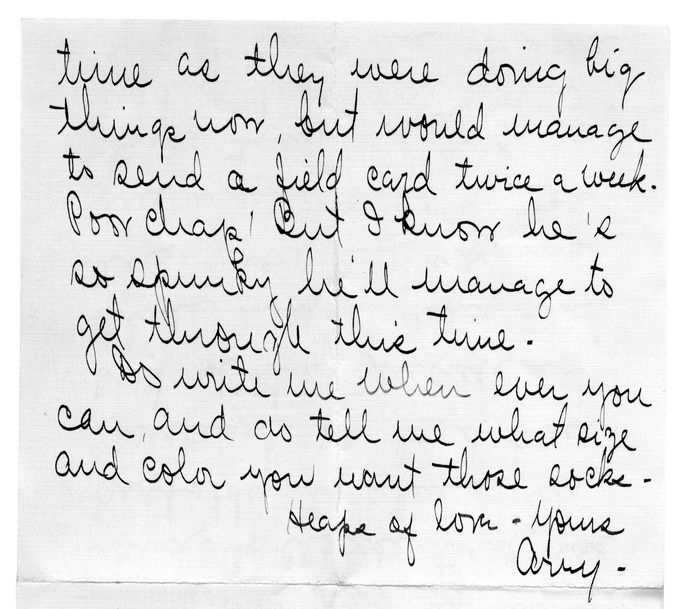 time as they were doing big
things now, but would manage
to send a field card twice a week.
Poor chap! But I know he's
so spunky he'll manage to
get through this time.
Do write me when ever you
can, and do tell me what size
and color you want those socks-
Heaps of love - Yours